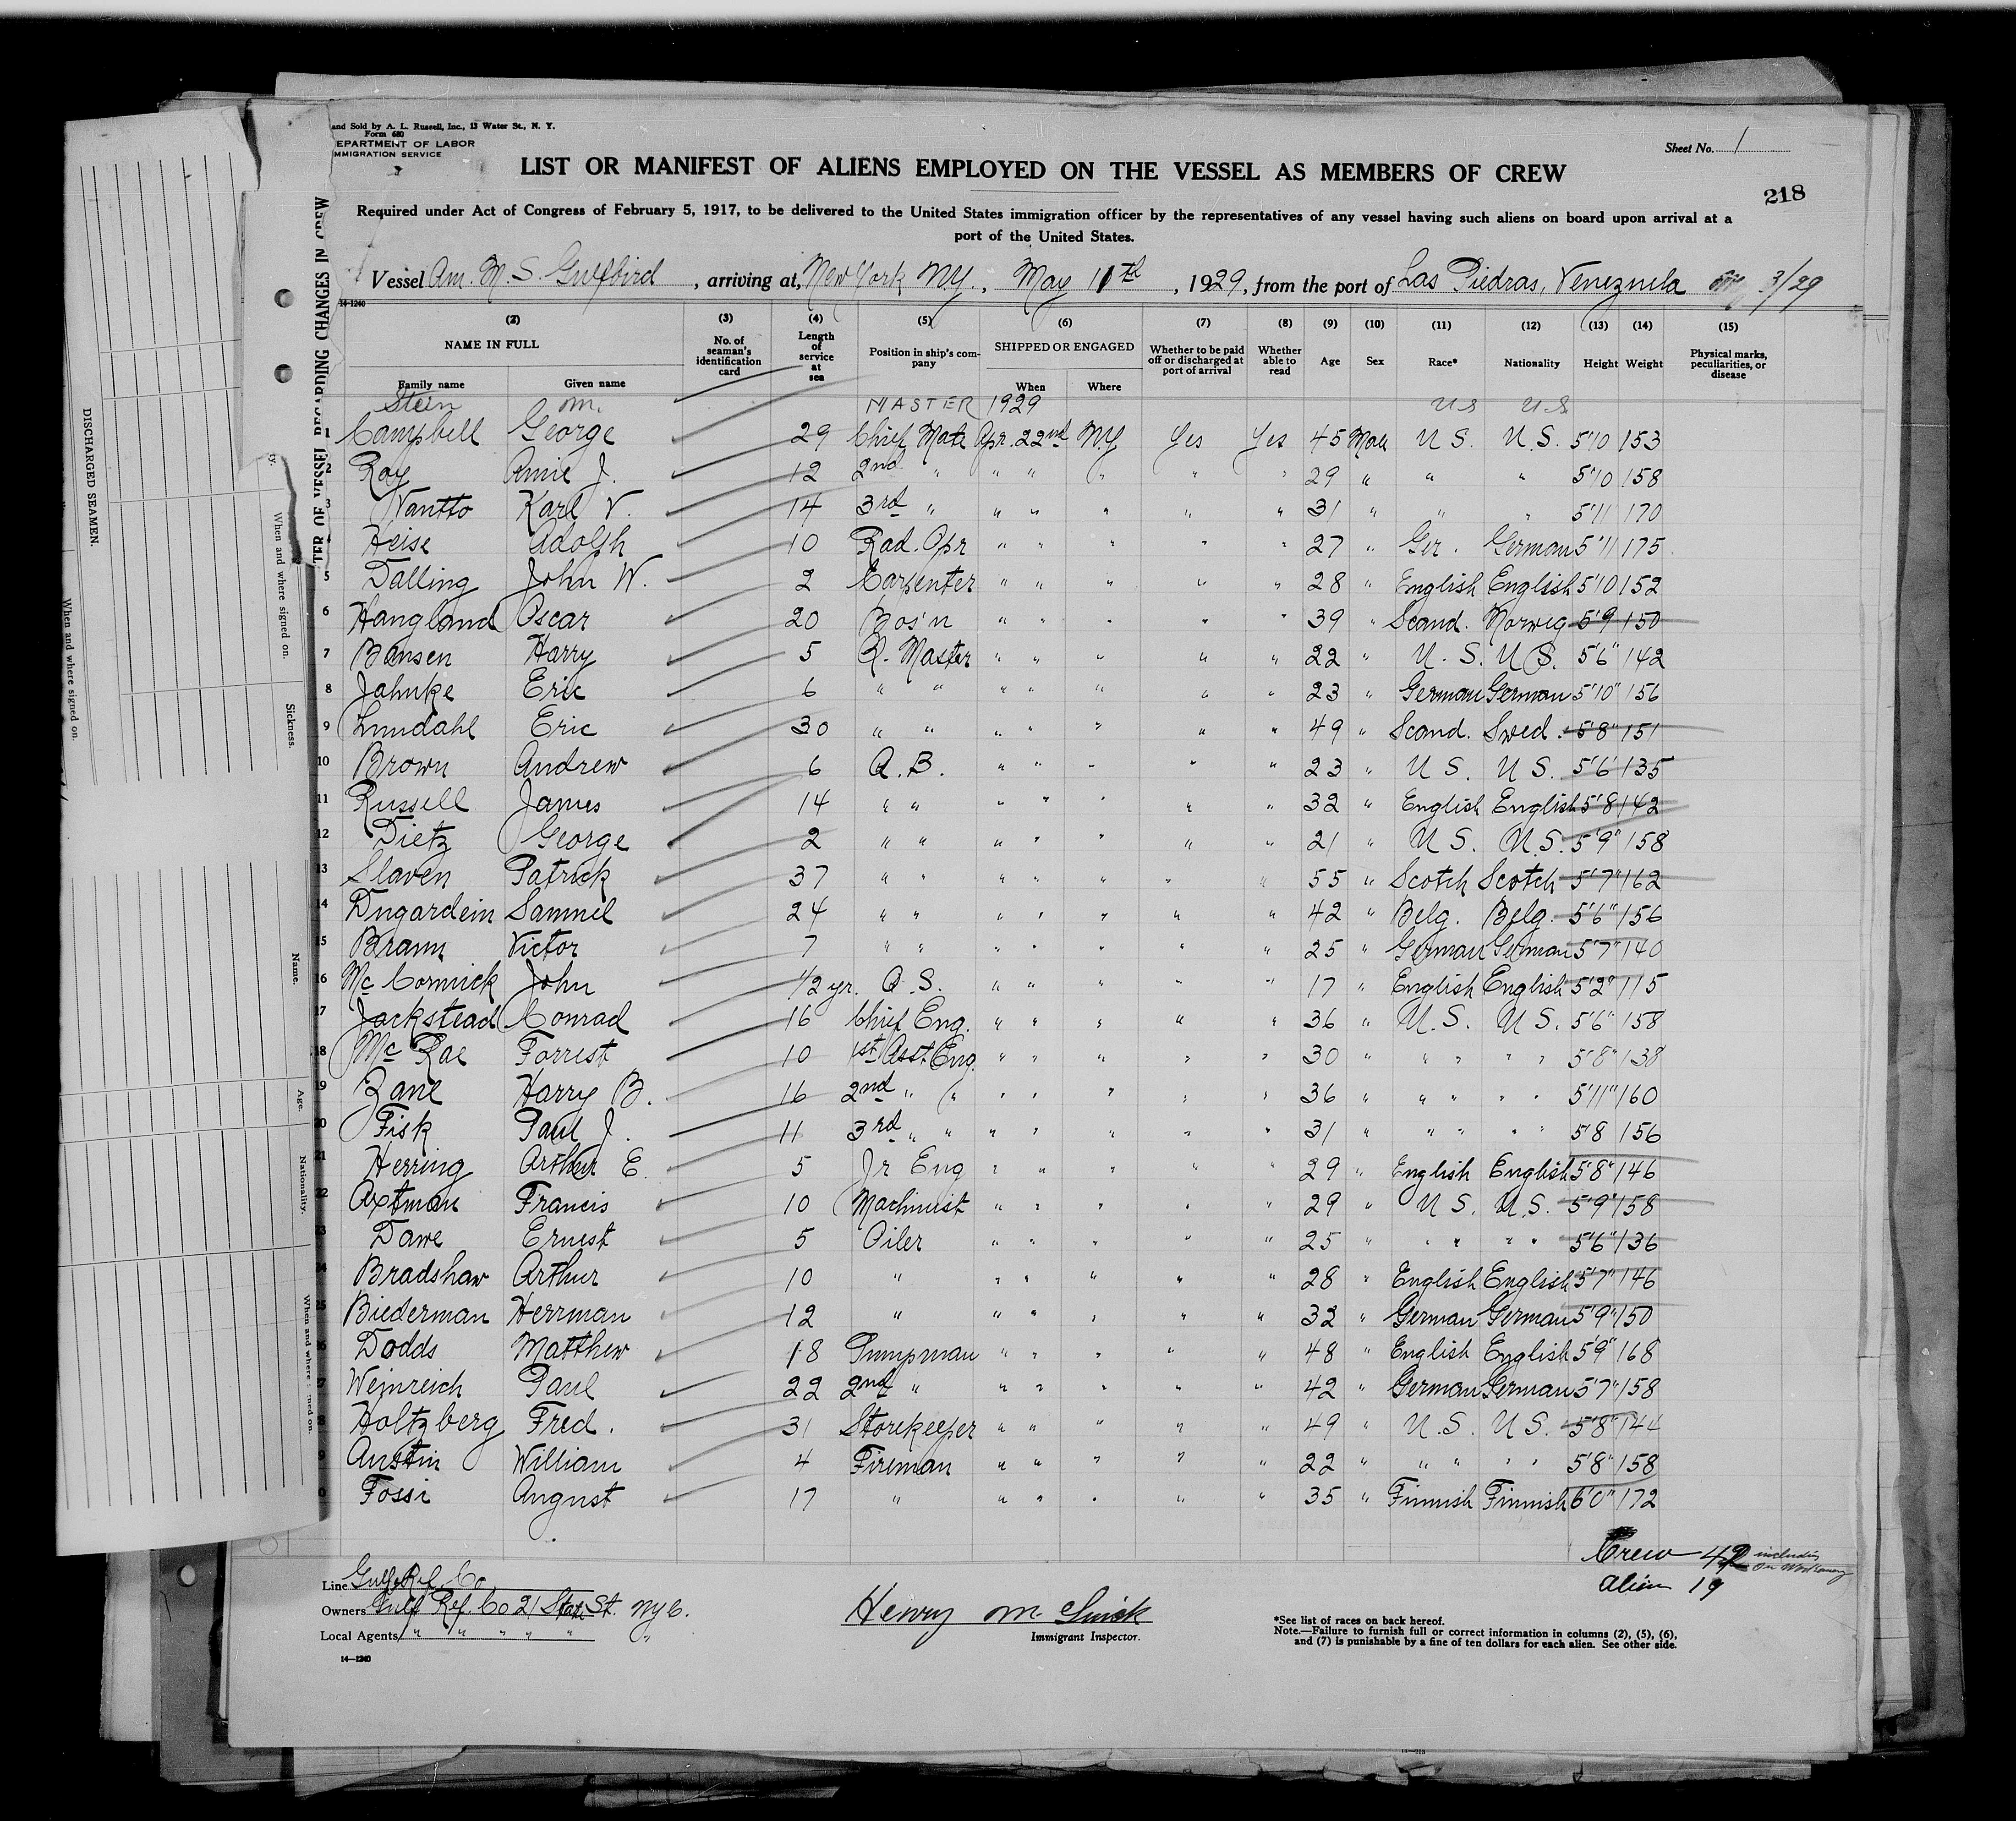 and Sold by A. L. Russell, Inc., 13 Water St., N. Y.
Form 680
EPARTMENT OF LABOR
MMIGRATION SERVICE
Sheet No. 1
LIST OR MANIFEST OF ALIENS EMPLOYED ON THE VESSEL AS MEMBERS OF CREW
218
Required under Act of Congress of February 5, 1917, to be delivered to the United States immigration officer by the representatives of any vessel having such aliens on board upon arrival at a
port of the United States.
Vessel Am. M. S. Gulfbird, arriving at, New York NY., May 11th, 1929, from the port of Las Piedras, Venezuela 3/29
14-1240
(2) (3) (4) (5) (6) (7) (8) (9) (10) (11) (12) (13) (14) (15)
NAME IN FULL No. of seaman's identification card Length of service at sea Position in ship's company SHIPPED OR ENGAGED Whether to be paid off or discharged at port of arrival Whether able to read Age Sex Race* Nationality Height Weight Physical marks, peculiarities, or disease
Family name Given name When Where
Stein M. MASTER 1929 US US
1 Campbell George 29 Chief Mate Apr. 22nd NY Yes Yes 45 Male U S. U.S. 5'10 153
2 Roy Amie J. 12 2nd " " " " " " 29 " " " 5'10 158
3 Nantto Karl V. 14 3rd " " " " " " 31 " " " 5'11 170
4 Heise Adolph 10 Rad. Opr " " " " " 27 " Ger. German 5'11 175
5 Dalling John W. 2 Carpenter " " " " " 28 " English English 5'10 152
6 Hangland Oscar 20 Bos'n " " " " " 39 " Scand. Norweg 5'9 150
7 Bansen Harry 5 Q. Master " " " " " 22 " U. S. U S. 5'6" 142
8 Jahnke Eric 6 " " " " " " " 23 " German German 5'10" 156
9 Lundahl Eric 30 " " " " " " " 49 " Scand. Swed. 5'8" 151
10 Brown Andrew 6 A. B. " " " " " 23 " U S. U S. 5'6 135
11 Russell James 14 " " " " " " " 32 " English English 5'8 142
12 Dietz George 2 " " " " " " " 21 " U S. U.S. 5'9" 158
13 Slaven Patrick 37 " " " " " " " 55 " Scotch Scotch 5'7" 162
14 Dugardein Samuel 24 " " " " " " " 42 " Belg. Belg. 5'6" 156
15 Braun Victor 7 " " " " " " " 25 " German German 5'7" 140
16 McCormick John 1/2 yr. O. S. " " " " " 17 " English English 5'2" 115
17 Jackstead Conrad 16 Chief Eng. " " " " " 36 " U. S. U S. 5'6" 158
18 McRae Forrest 10 1st Asst. Eng. " " " " " 30 " " " " " 5'8" 138
19 Zane Harry B. 16 2nd " " " " " " " 36 " " " " " 5'11" 160
20 Fisk Paul J. 11 3rd " " " " " " " 31 " " " " " 5'8 156
21 Herring Arthur E. 5 Jr Eng " " " " " 29 " English English 5'8" 146
22 Axtman Francis 10 Machinist " " " " " 29 " U S. U.S. 5'9" 158
23 Dawe Ernest 5 Oiler " " " " " 25 " " " " " 5'6" 136
24 Bradshaw Arthur 10 " " " " " " 28 " English English 5'7" 146
25 Biederman Herrman 12 " " " " " " 32 " German German 5'9" 150
26 Dodds Matthew 18 Pumpman " " " " " 48 " English English 5'9" 168
27 Weinreich Paul 22 2nd " " " " " " 42 " German German 5'7" 158
8 Holtzberg Fred. 31 Storekeeper " " " " " 49 " U.S. U S. 5'8" 144
9 Austin William 4 Fireman " " " " " 22 " " " " " 5'8" 158
0 Fossi August 17 " " " " " " 35 " Finnish Finnish 6'0" 172
Crew 42 including
alien 19
Line Gulf Ref. Co
Owners Gulf Ref. Co 21 State St. NYC.
Local Agents " " " " " "
14—1240
Henry M.
Immigrant Inspector.
*See list of races on back hereof.
Note.—Failure to furnish full or correct information in columns (2), (5), (6),
and (7) is punishable by a fine of ten dollars for each alien. See other side.
TER OF VESSEL REGARDING CHANGES IN CREW
DISCHARGED SEAMEN.
When and where signed on.
When and where signed on.
Sickness.
Name.
Age.
Nationality.
When and where